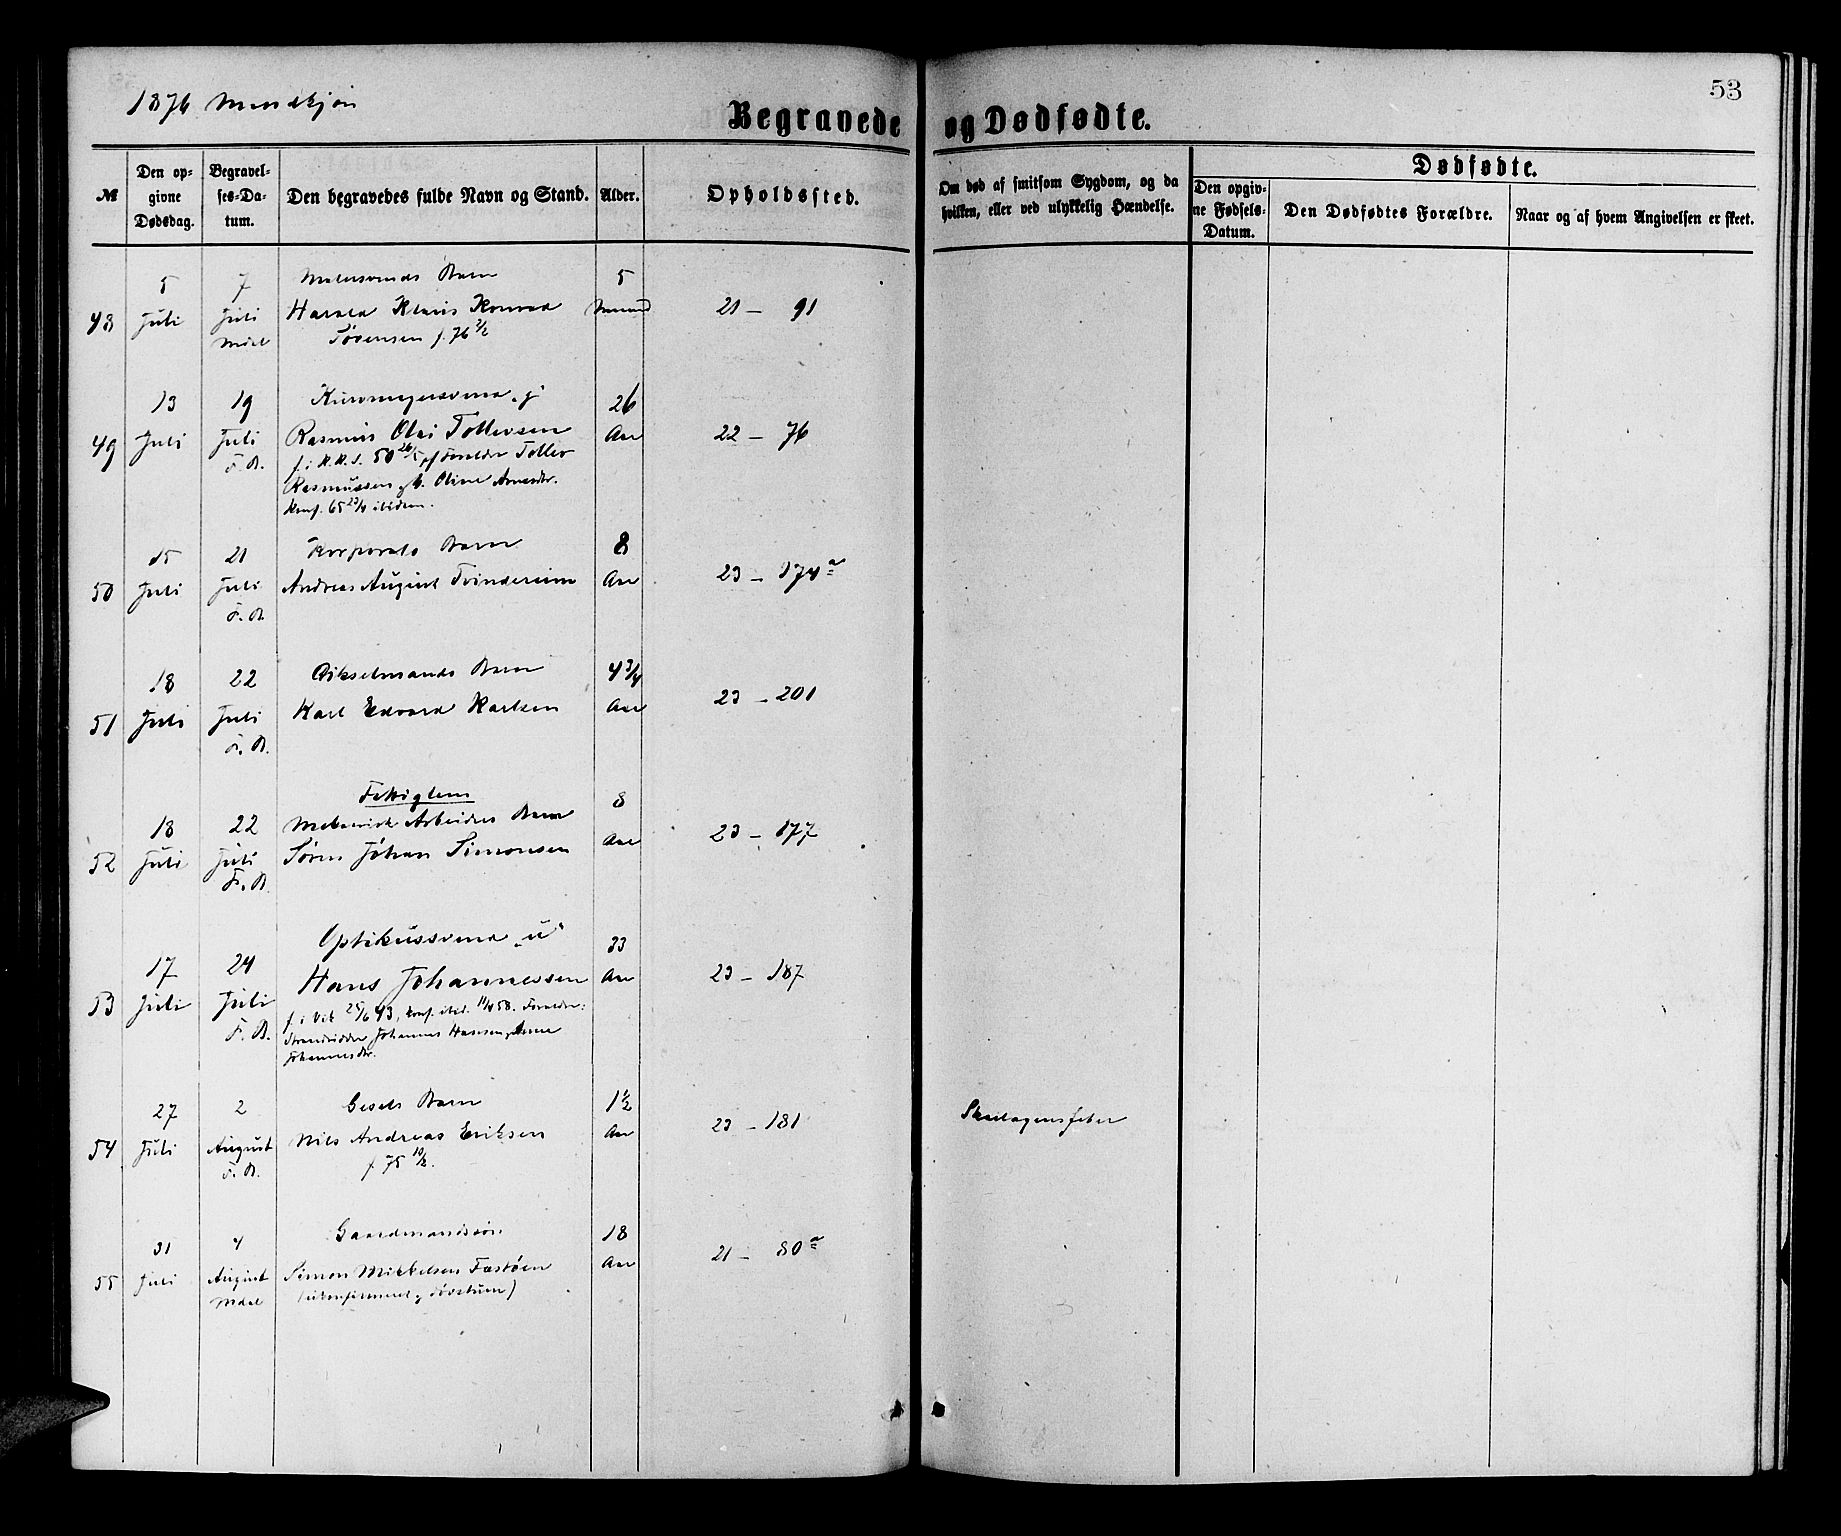 1876 Mandkjøn
53
Begravede og Dødfødte.
№
Den opgivne Dødsdag.
Begravelses-Datum.
Den begravedes fulde Navn og Stand.
Alder.
Opholdssted.
Om død af smitsom Sygdom, og da hvilken, eller ved ulykkelig Hændelse.
Dødfødte.
Den opgivne Fødsels-Datum.
Den Dødfødtes Forældre.
Naar og af hvem Angivelsen er skeet.
5 7 Malersvends Barn 5
48 Juli Juli Harald Klaus Konrad Maaned 21 — 91
Mdal Sørensen f. 76 2/2
13 19 "g" 26
49 Juli Juli Rasmus Olai Tollevsen Aar 22 — 76
F. B. f. i 50 26/5 af Forældre Tollev
Rasmussen g h. Oline
konf. 65 23/4 ibidem.
15 21 Korporals Barn 8
50 Juli Juli Andreas August Aar 23 — 174 a
F. B.
18 22 Barn 4 3/4
51 Juli Juli Karl Edvard Karlsen Aar 23 — 201
F. B.
Fattiglem
18 22 Mekanisk Arbeiders Barn 8
52 Juli Juli Søren Johan Simonsen Aar 23 — 177
F. B.
17 24 Optikussvend "u" 33
53 Juli Juli Hans Johannessen Aar 23 — 187
F. B. f. i Vik 25/6 43, konf. ibid. 11/4 58. Forældre:
Strandsidder Johannes Hansen, g Anne
Johannesdr.
27 2 Barn 1 1/2
54 Juli August Nils Andreas Eriksen Aar 23 — 181 Skarlagensfeber
F. B. f 75 10/2.
31 4 Gaardmandssøn 18
55 Juli August Simon Mikkelsen Fastøen Aar 21 — 80 a
Mdal (ukonfirmeret g døvstum)